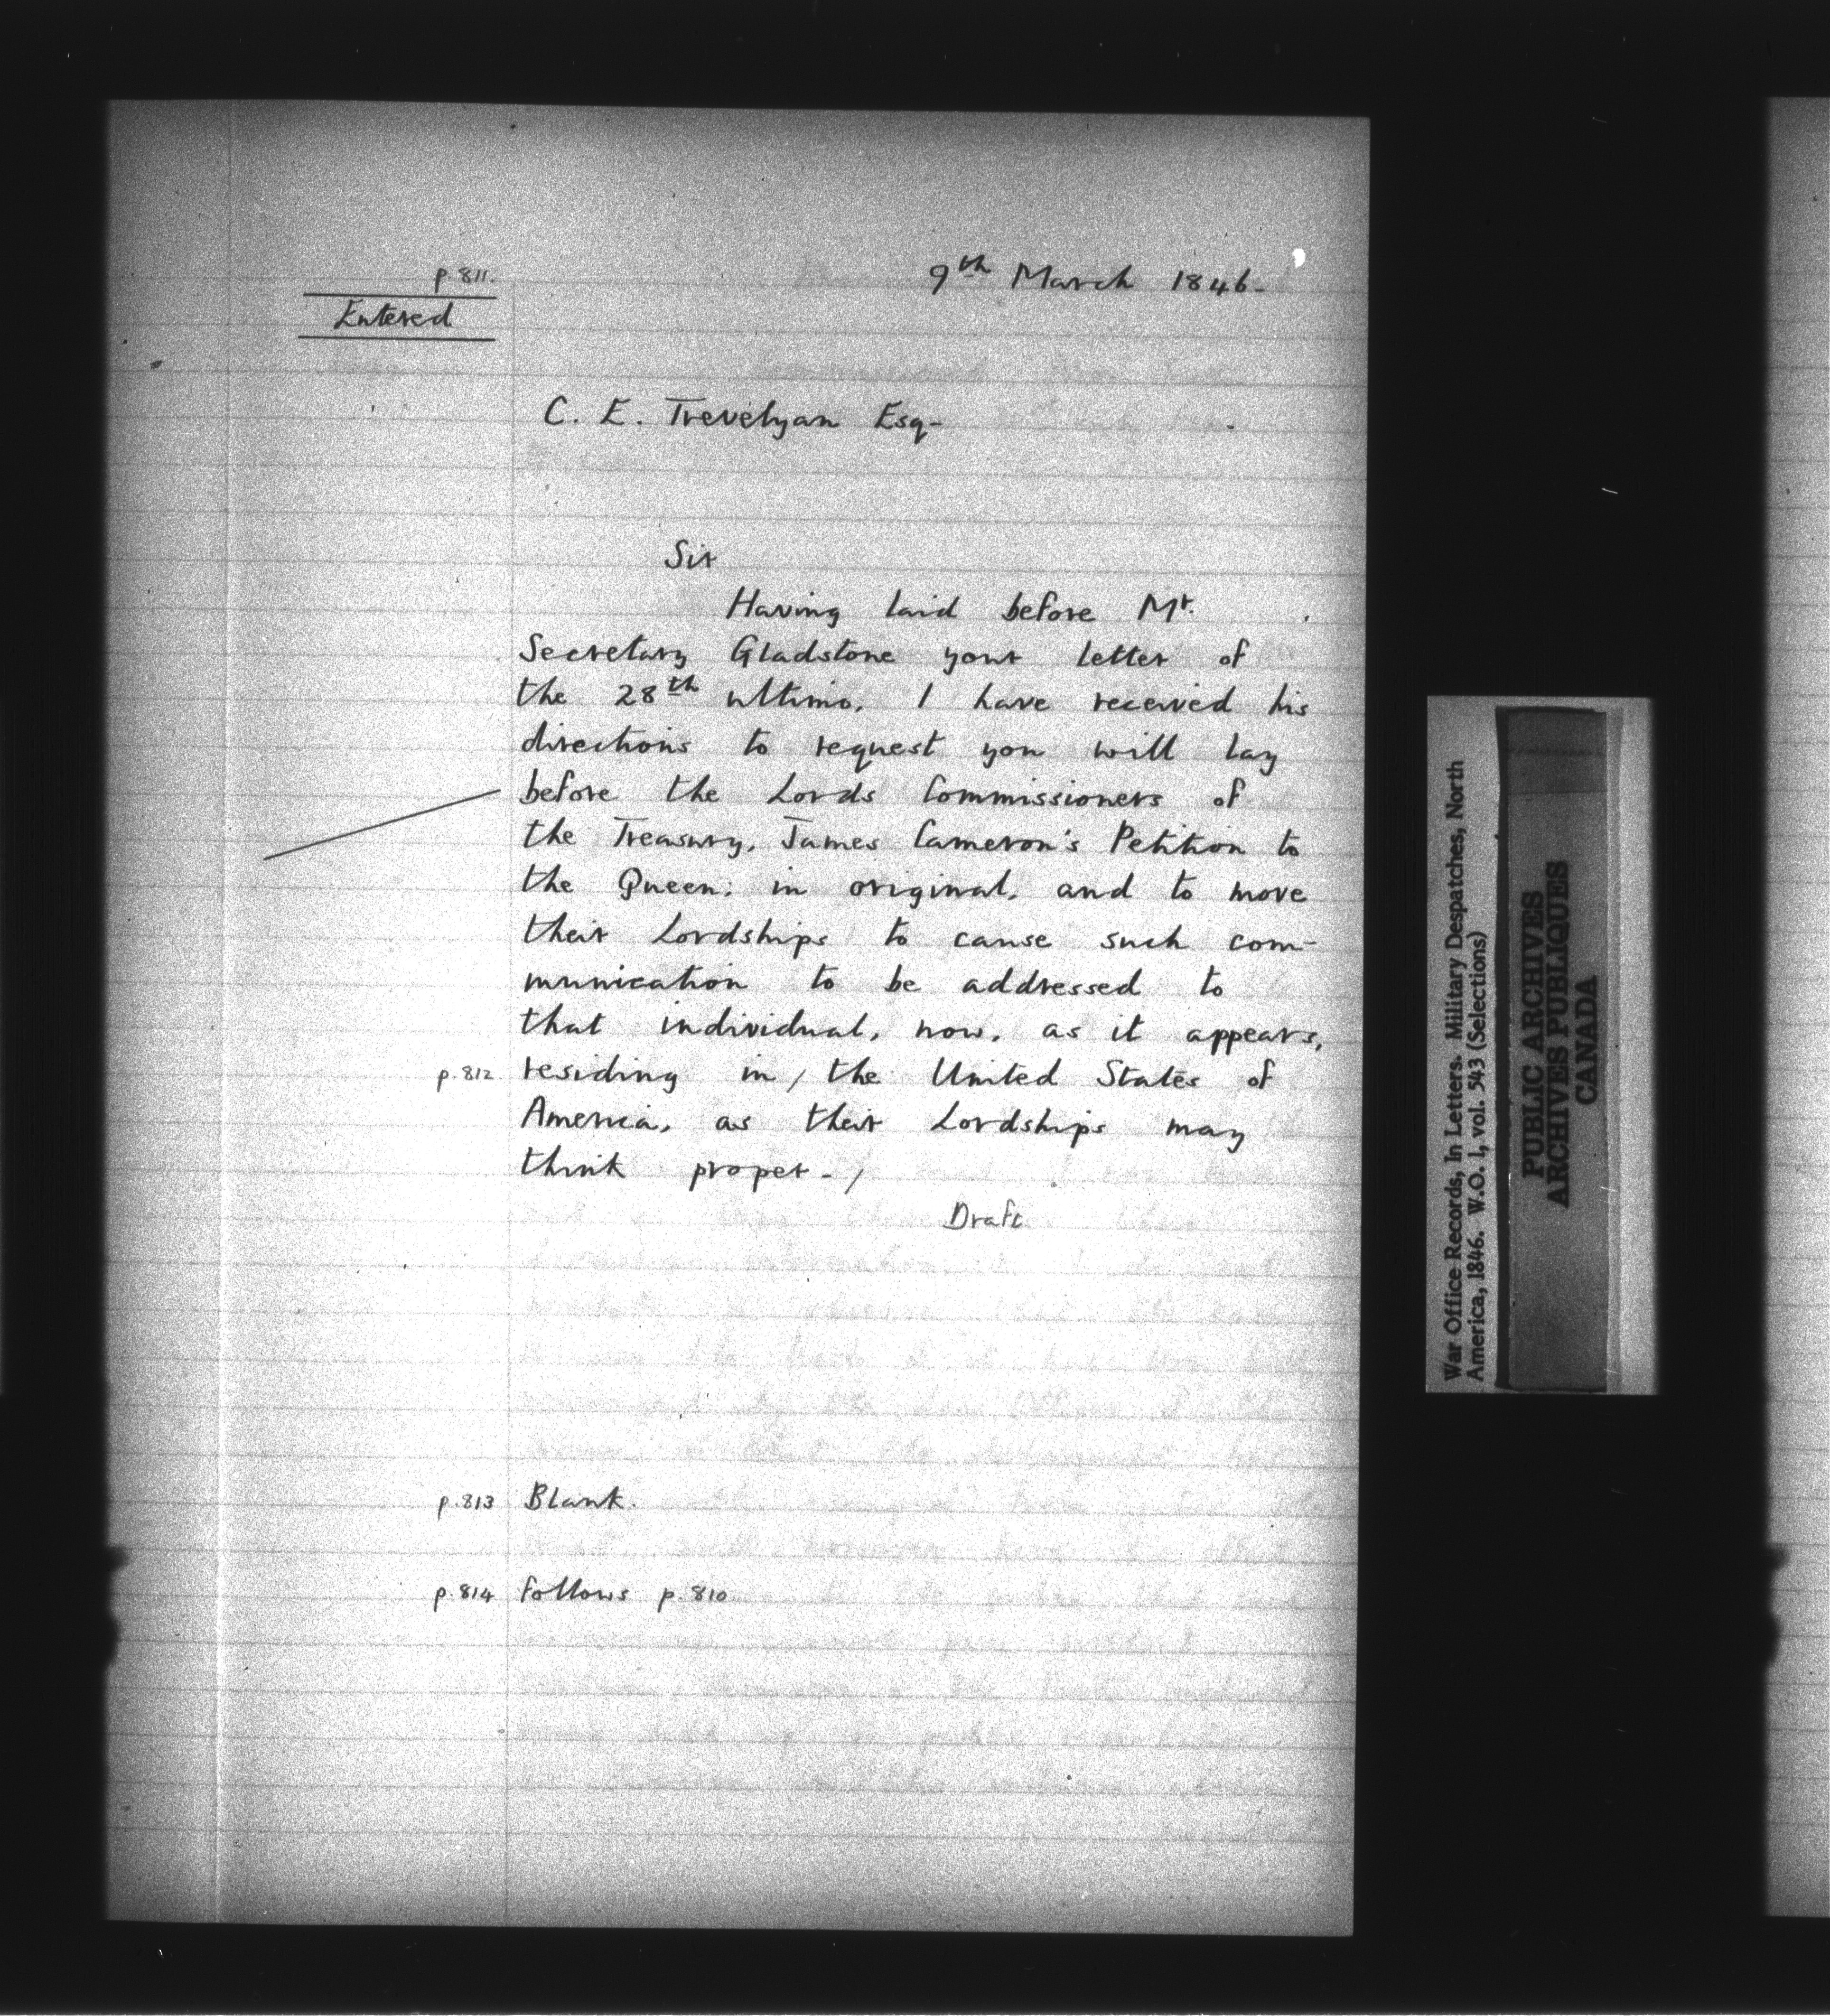 p. 811.
9th March 1846-
Entered
C. E. Trevelyan Esq-
Sir
Having laid before Mr.
Secretary Gladstone your letter of
the 28th ultimo, I have received his
directions to request you will lay
before the Lords Commissioners of
the Treasury, James Cameron's Petition to
the Queen, in original, and to move
their Lordships to cause such com-
munication to be addressed to
that individual, now, as it appears,
p.812 residing in / the United States of
America, as their Lordships may
think proper - /
Draft
p.813 Blank.
p.814 follows p.810
War Office Records, In Letters. Military Despatches, North
America, 1846. W.O. 1, vol. 543 (Selections)
PUBLIC ARCHIVES
ARCHIVES PUBLIQUES
CANADA